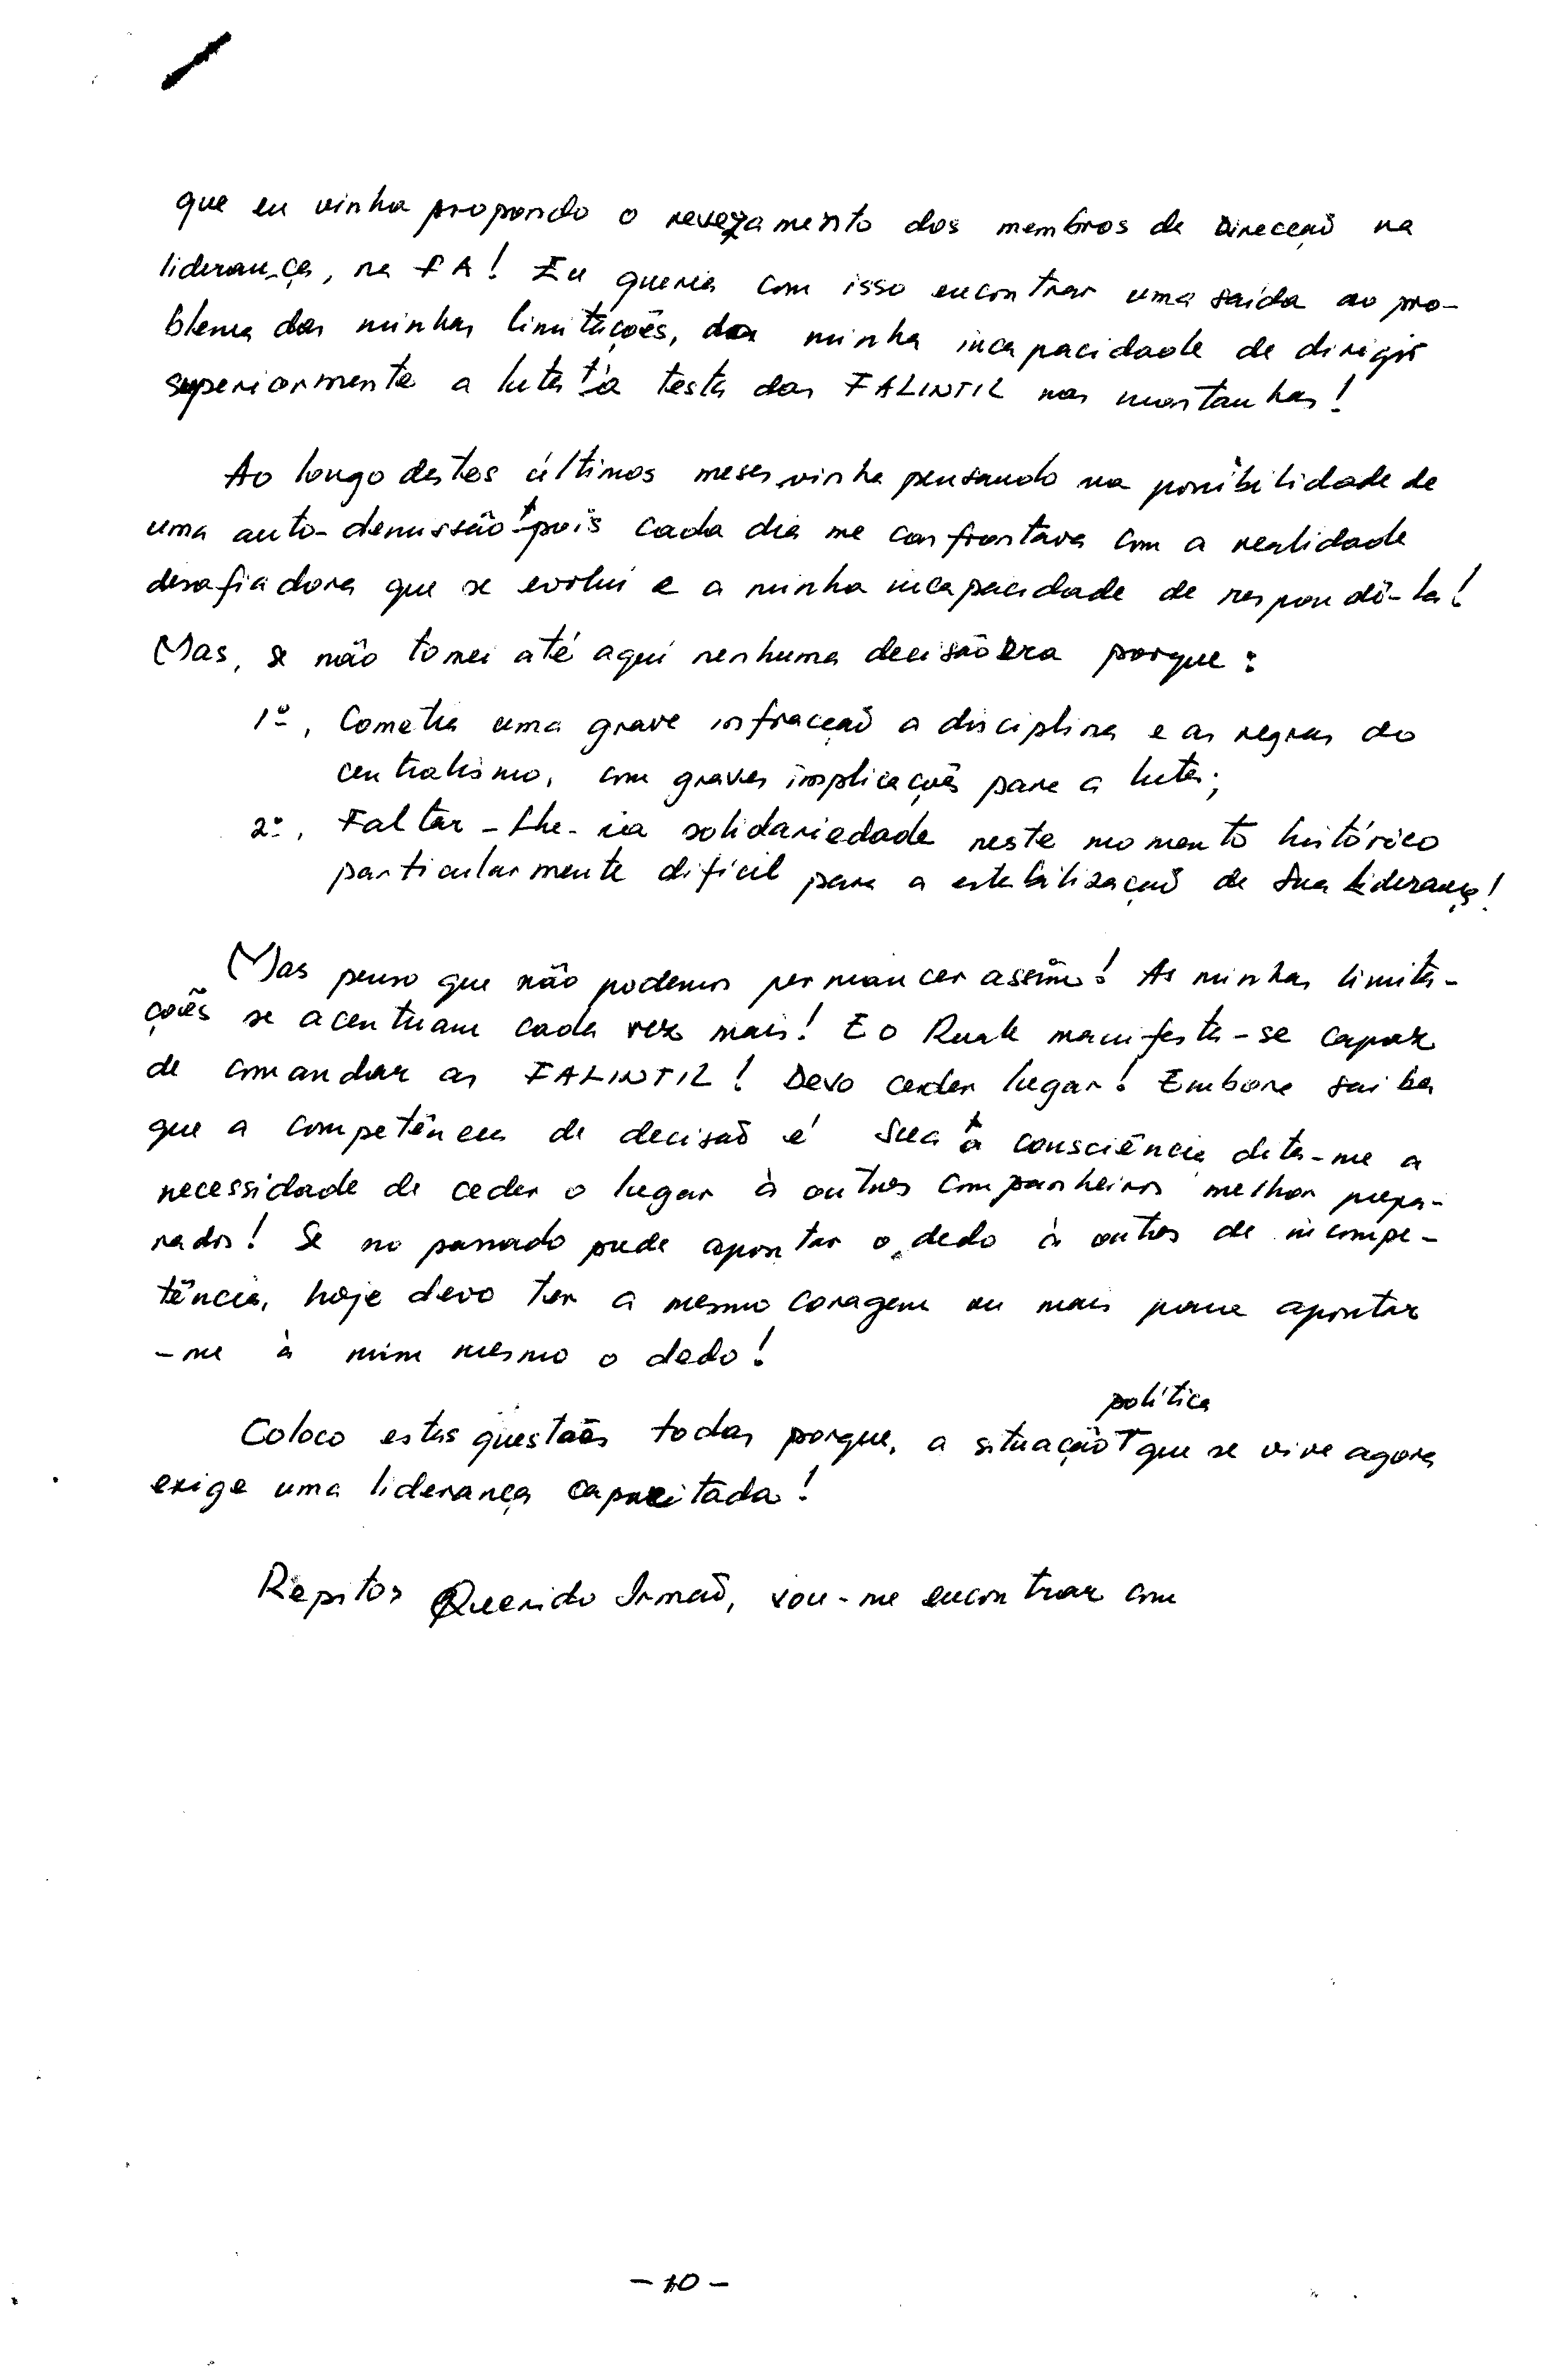 que eu vinha propondo o revezamento dos membros da Direcção na
liderança, na FA! Eu queria com isso encontrar uma saída ao pro-
blema das minhas limitações, da minha incapacidade de dirigir
superiormente a luta à testa das FALINTIL nas montanhas!
Ao longo destes últimos meses vinha pensando na possibilidade de
uma auto-demissão pois cada dia me confrontava com a realidade
desafiadora que se evolui e a minha incapacidade de respondê-la!
Mas, se não tomei até aqui nenhuma decisão era porque:
1º, Cometia uma grave infracção a disciplina e as regras do
centralismo, com graves implicações para a luta;
2º, Faltar-Lhe-ia solidariedade neste momento histórico
particularmente difícil para a estabilização de Sua Liderança!
Mas penso que não podemos permanecer assim! As minhas limita-
ções se acentuam cada vez mais! E o Ruak manifesta-se capaz
de comandar as FALINTIL! Devo ceder lugar! Embora saiba
que a competência de decisão é Sua a consciência dita-me a
necessidade de ceder o lugar à outros companheiros melhor prepa-
rados! Se no passado pude apontar o dedo à outros de incompe-
tência, hoje devo ter a mesmo coragem ou mais para apontar
-me à mim mesmo o dedo!
política
Coloco estas questões todas porque, a situação que se vive agora
exige uma liderança capacitada!
Repito, Querido Irmão, vou-me encontrar com
- 10 -